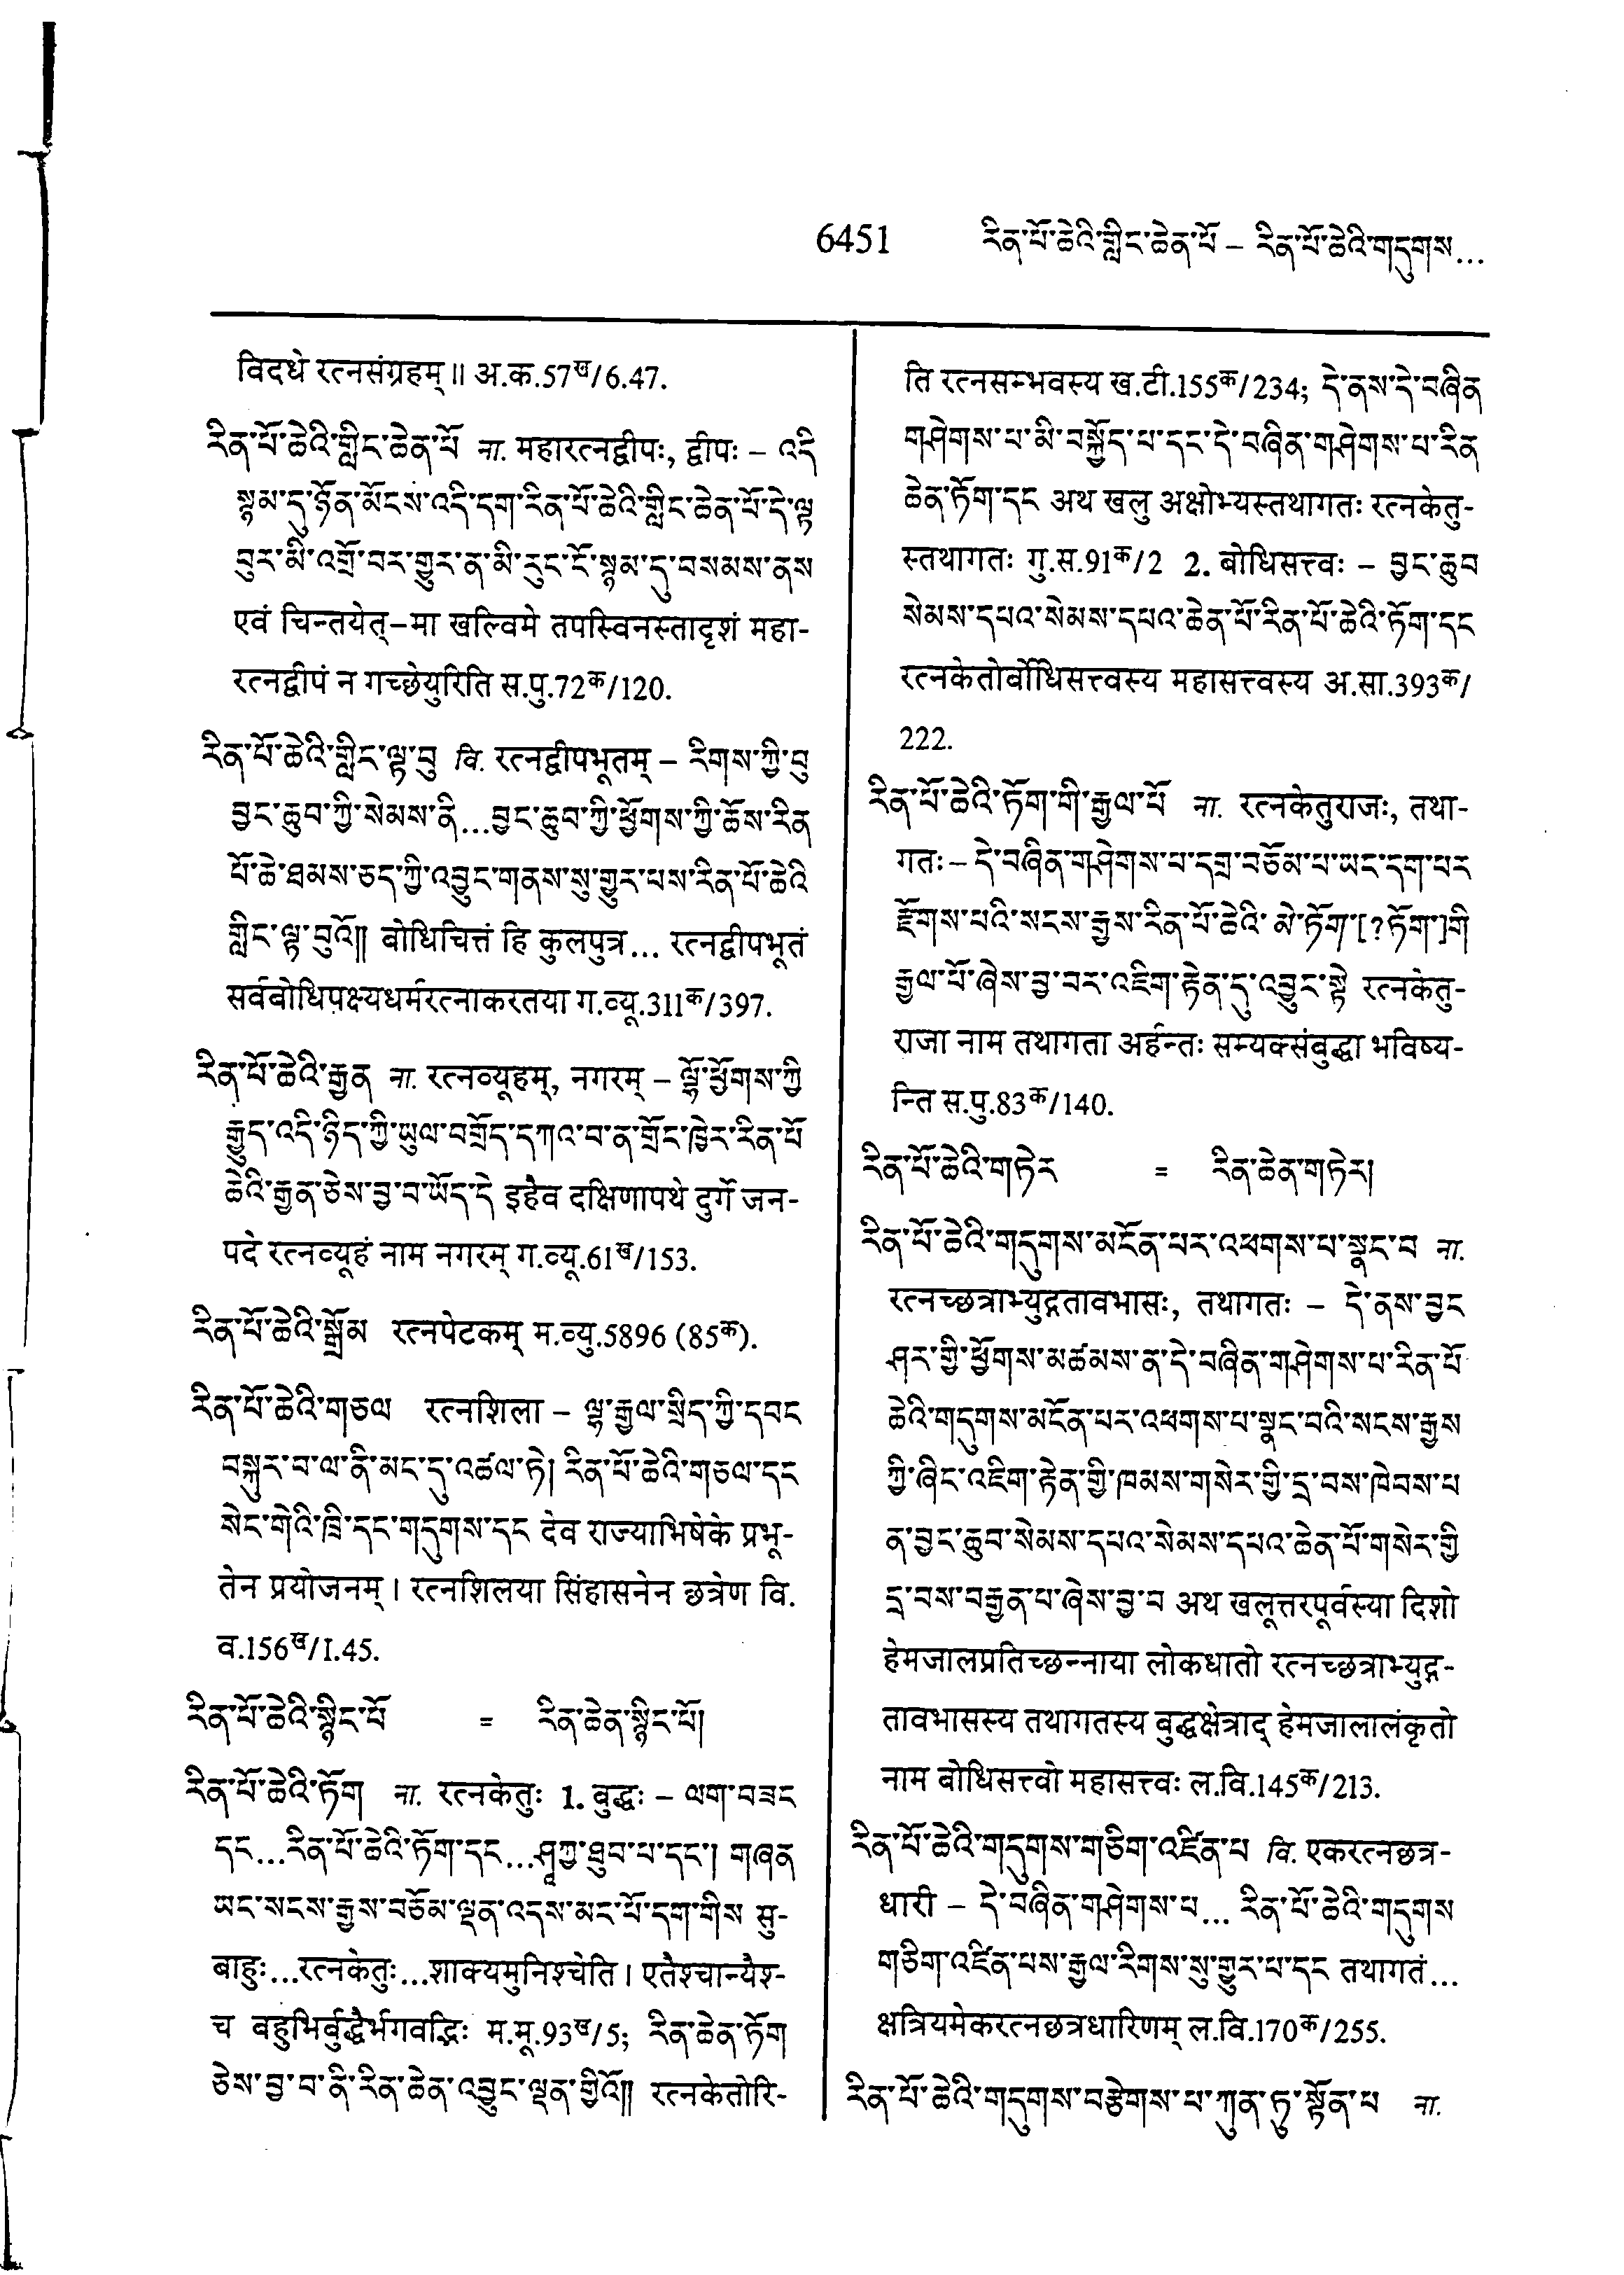 6451 རིན་པོ་ཆེའི་གླིང་ཆེན་པོ – རིན་པོ་ཆེའི་གདུགས...
विदधे रत्नसंग्रहम्॥ अ.क.57ख/6.47.
རིན་པོ་ཆེའི་གླིང་ཆེན་པོ ना. महारत्नद्वीपः, द्वीपः – འདི
སྙམ་དུ་ཉོན་མོངས་འདི་དག་རིན་པོ་ཆེའི་གླིང་ཆེན་པོ་དེ་ལྟ
བུར་མི་འགྲོ་བར་གྱུར་ན་མི་རུང་ངོ་སྙམ་དུ་བསམས་ནས
एवं चिन्तयेत्–मा खल्विमे तपस्विनस्तादृशं महा-
रत्नद्वीपं न गच्छेयुरिति स.पु.72क/120.
རིན་པོ་ཆེའི་གླིང་ལྟ་བུ वि. रत्नद्वीपभूतम् – རིགས་ཀྱི་བུ
བྱང་ཆུབ་ཀྱི་སེམས་ནི...བྱང་ཆུབ་ཀྱི་ཕྱོགས་ཀྱི་ཆོས་རིན
པོ་ཆེ་ཐམས་ཅད་ཀྱི་འབྱུང་གནས་སུ་གྱུར་པས་རིན་པོ་ཆེའི
གླིང་ལྟ་བུའོ།། बोधिचित्तं हि कुलपुत्र... रत्नद्वीपभूतं
सर्वबोधिपक्ष्यधर्मरत्नाकरतया ग.व्यू.311क/397.
རིན་པོ་ཆེའི་རྒྱན ना. रत्नव्यूहम्, नगरम् – ལྷོ་ཕྱོགས་ཀྱི
རྒྱུད་འདི་ཉིད་ཀྱི་ཡུལ་བགྲོད་དཀའ་བ་ན་གྲོང་ཁྱེར་རིན་པོ
ཆེའི་རྒྱན་ཅེས་བྱ་བ་ཡོད་དེ इहैव दक्षिणापथे दुर्गे जन-
पदे रत्नव्यूहं नाम नगरम् ग.व्यू.61ख/153.
རིན་པོ་ཆེའི་སྒྲོམ रत्नपेटकम् म.व्यु.5896 (85क).
རིན་པོ་ཆེའི་གཅལ रत्नशिला – ལྷ་རྒྱལ་སྲིད་ཀྱི་དབང
བསྐུར་བ་ལ་ནི་མང་དུ་འཚལ་ཏེ། རིན་པོ་ཆེའི་གཅལ་དང
སེང་གེའི་ཁྲི་དང་གདུགས་དང देव राज्याभिषेके प्रभू-
तेन प्रयोजनम्। रत्नशिलया सिंहासनेन छत्रेण वि.
व.156ख/I.45.
རིན་པོ་ཆེའི་སྙིང་པོ = རིན་ཆེན་སྙིང་པོ།
རིན་པོ་ཆེའི་ཏོག ना. रत्नकेतुः 1. बुद्धः – ལག་བཟང
དང...རིན་པོ་ཆེའི་ཏོག་དང...ཤཱཀྱ་ཐུབ་པ་དང་། གཞན
ཡང་སངས་རྒྱས་བཅོམ་ལྡན་འདས་མང་པོ་དག་གིས सु-
बाहुः...रत्नकेतुः...शाक्यमुनिश्चेति। एतैश्चान्यैश्-
च बहुभिर्बुद्धैर्भगवद्भिः म.मू.93ख/5; རིན་ཆེན་ཏོག
ཅེས་བྱ་བ་ནི་རིན་ཆེན་འབྱུང་ལྡན་གྱིའོ།། रत्नकेतोरि-
ति रत्नसम्भवस्य ख.टी.155क/234; དེ་ནས་དེ་བཞིན
གཤེགས་པ་མི་བསྐྱོད་པ་དང་དེ་བཞིན་གཤེགས་པ་རིན
ཆེན་ཏོག་དང अथ खलु अक्षोभ्यस्तथागतः रत्नकेतु-
स्तथागतः गु.स.91क/2 2. बोधिसत्त्वः – བྱང་ཆུབ
སེམས་དཔའ་སེམས་དཔའ་ཆེན་པོ་རིན་པོ་ཆེའི་ཏོག་དང
रत्नकेतोर्बोधिसत्त्वस्य महासत्त्वस्य अ.सा.393क/
222.
རིན་པོ་ཆེའི་ཏོག་གི་རྒྱལ་པོ ना. रत्नकेतुराजः, तथा-
गतः – དེ་བཞིན་གཤེགས་པ་དགྲ་བཅོམ་པ་ཡང་དག་པར
རྫོགས་པའི་སངས་རྒྱས་རིན་པོ་ཆེའི་ མེ་ཏོག་[?ཏོག་]གི
རྒྱལ་པོ་ཞེས་བྱ་བར་འཇིག་རྟེན་དུ་འབྱུང་སྟེ रत्नकेतु-
राजा नाम तथागता अर्हन्तः सम्यक्संबुद्धा भविष्य-
न्ति स.पु.83क/140.
རིན་པོ་ཆེའི་གཏེར = རིན་ཆེན་གཏེར།
རིན་པོ་ཆེའི་གདུགས་མངོན་པར་འཕགས་པ་སྣང་བ ना.
रत्नच्छत्राभ्युद्गतावभासः, तथागतः – དེ་ནས་བྱང
ཤར་གྱི་ཕྱོགས་མཚམས་ན་དེ་བཞིན་གཤེགས་པ་རིན་པོ
ཆེའི་གདུགས་མངོན་པར་འཕགས་པ་སྣང་བའི་སངས་རྒྱས
ཀྱི་ཞིང་འཇིག་རྟེན་གྱི་ཁམས་གསེར་གྱི་དྲ་བས་ཁེབས་པ
ན་བྱང་ཆུབ་སེམས་དཔའ་སེམས་དཔའ་ཆེན་པོ་གསེར་གྱི
དྲ་བས་བརྒྱན་པ་ཞེས་བྱ་བ अथ खलूत्तरपूर्वस्या दिशो
हेमजालप्रतिच्छन्नाया लोकधातो रत्नच्छत्राभ्युद्ग-
तावभासस्य तथागतस्य बुद्धक्षेत्राद् हेमजालालंकृतो
नाम बोधिसत्त्वो महासत्त्वः ल.वि.145क/213.
རིན་པོ་ཆེའི་གདུགས་གཅིག་འཛིན་པ वि. एकरत्नछत्र-
धारी – དེ་བཞིན་གཤེགས་པ... རིན་པོ་ཆེའི་གདུགས
གཅིག་འཛིན་པས་རྒྱལ་རིགས་སུ་གྱུར་པ་དང तथागतं...
क्षत्रियमेकरत्नछत्रधारिणम् ल.वि.170क/255.
རིན་པོ་ཆེའི་གདུགས་བརྩེགས་པ་ཀུན་ཏུ་སྟོན་པ ना.